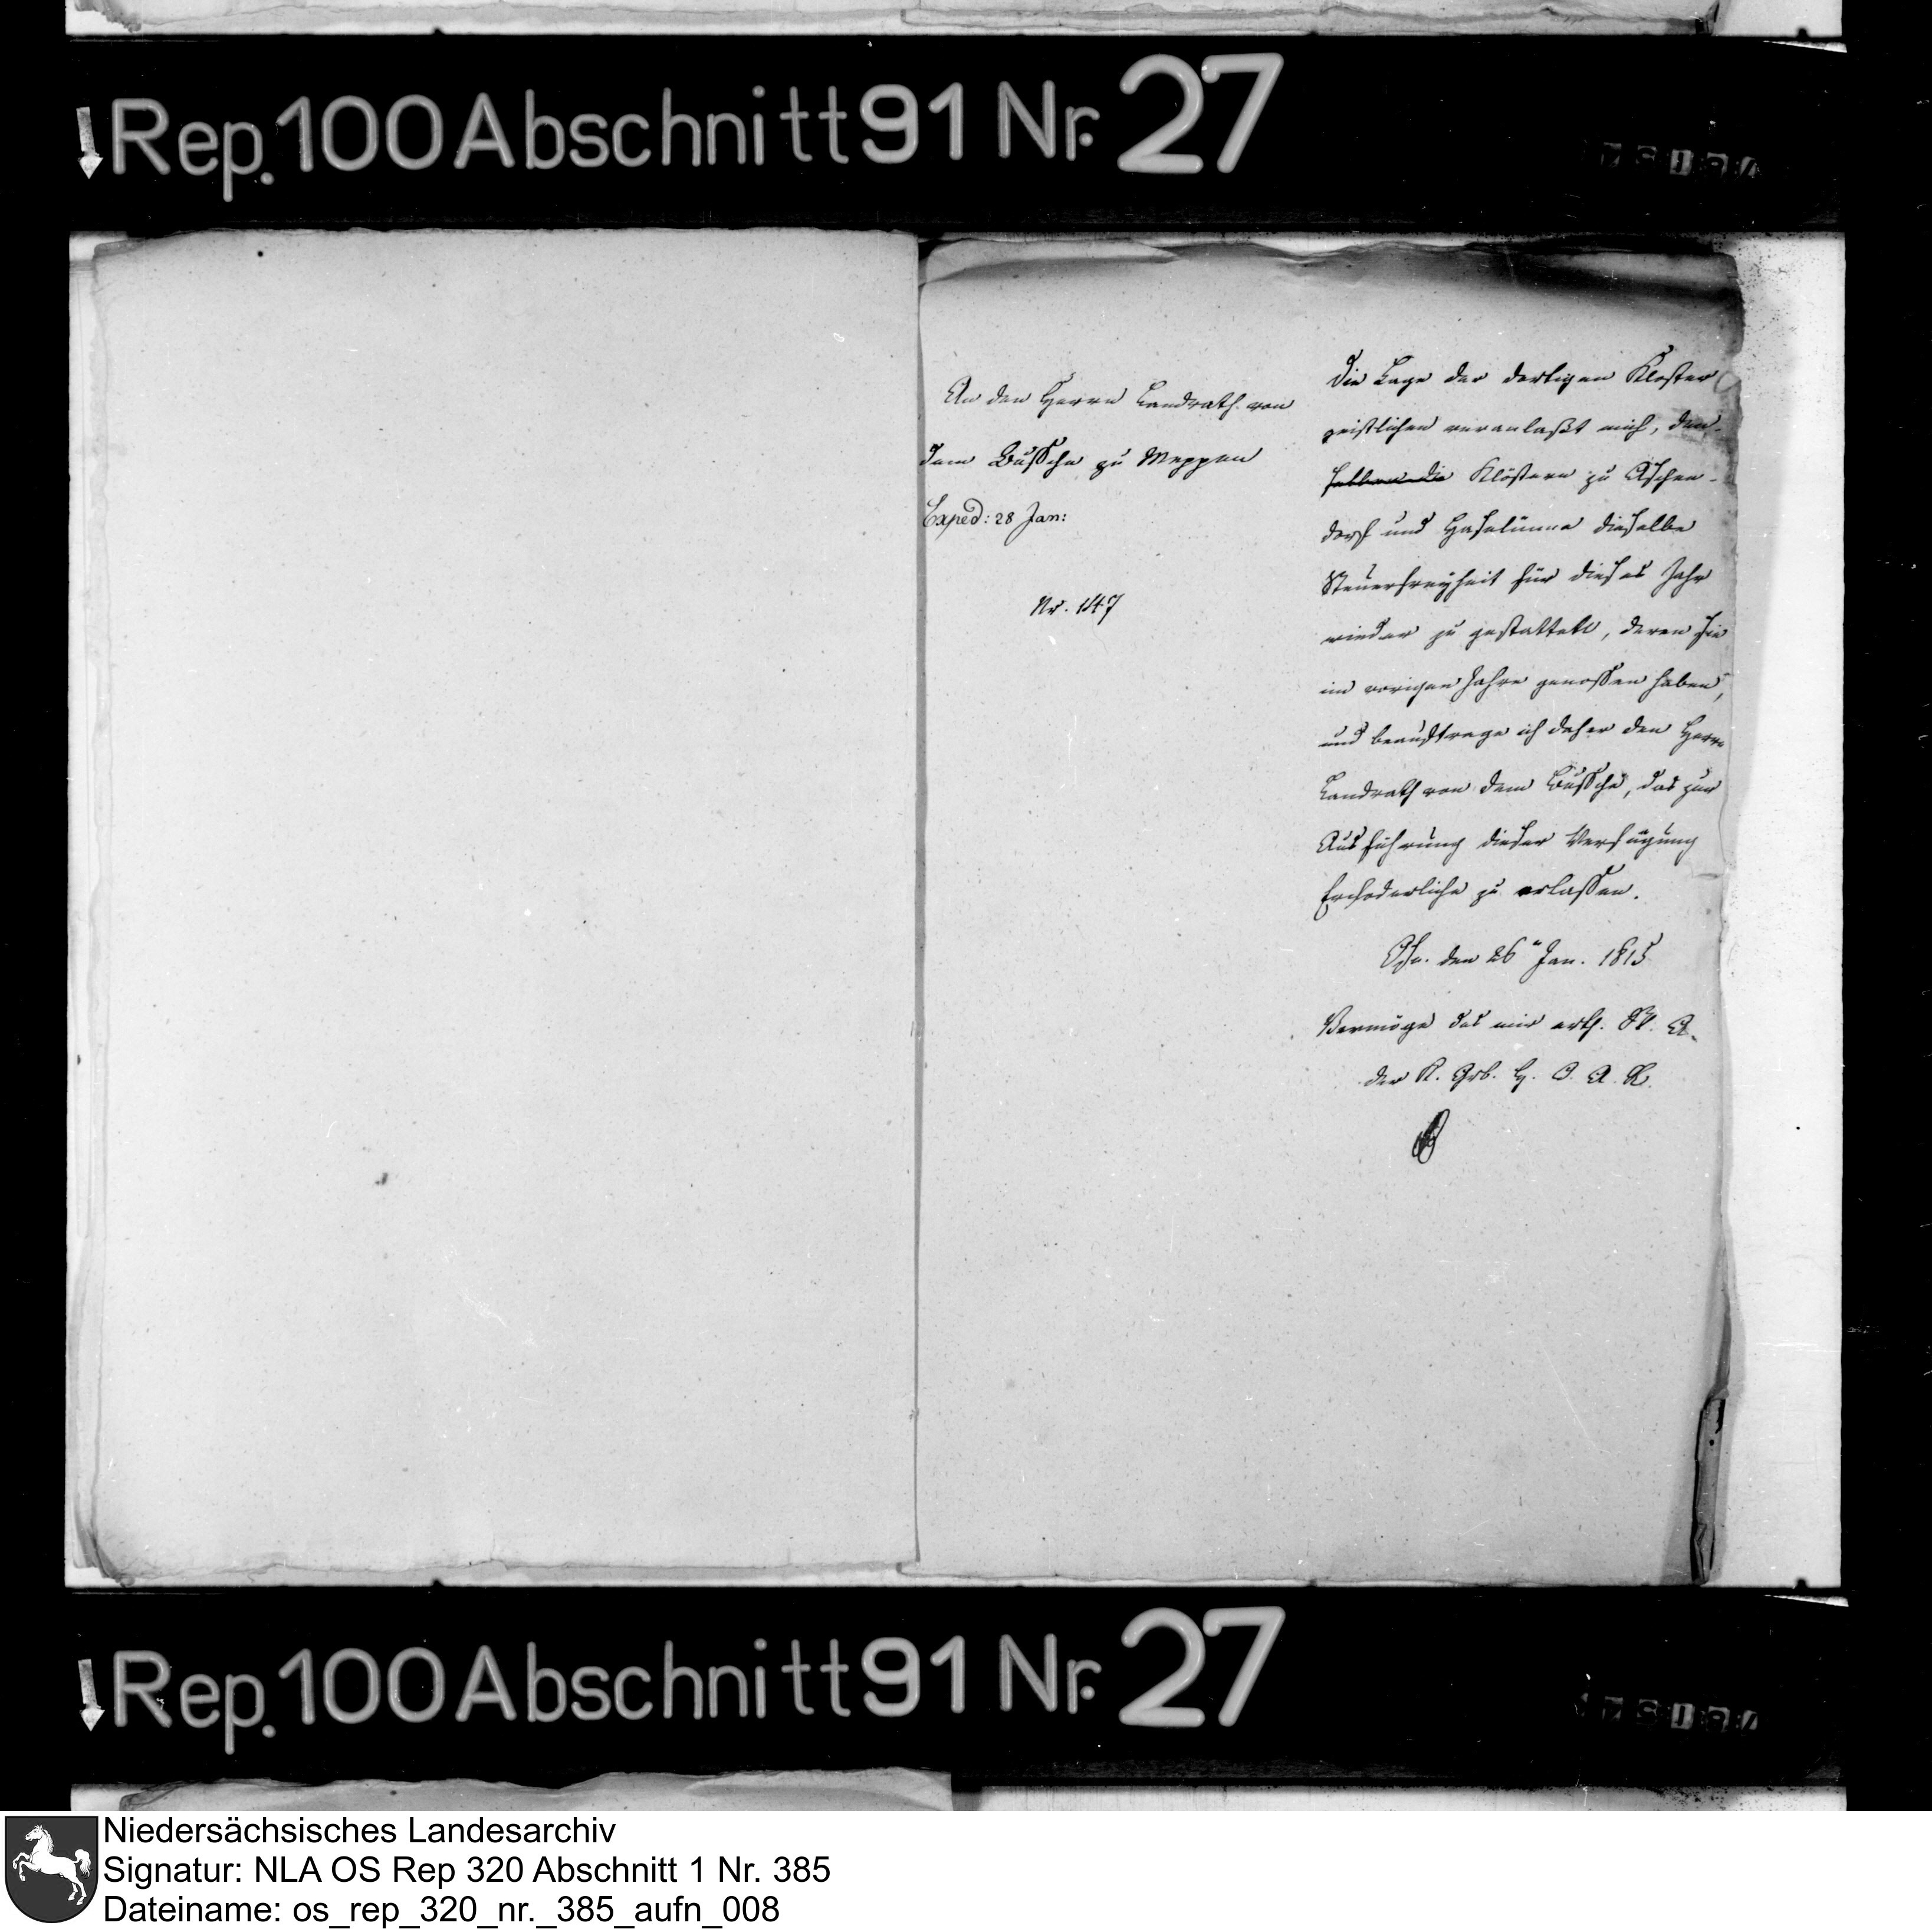 Rep. 100 Abschnitt 91 Nr. 27
An den Herrn Landrath von
dem Bussche zu Meppen
Exped: 28 Jan:
Nr. 147
Die Lage der dortigen Kloster
geistlichen veranlaßt mich, den
Klöstern zu Aschen-
dorf und Haselünne dieselbe
Steuerfreyheit für dieses Jahr
wieder zu gestatten, deren sie
im vorigen Jahre genossen haben,
und beauftrage ich daher den Herrn
Landrath von dem Bussche, das zur
Ausführung dieser Verfügung
Erfoderliche zu erlassen.
Osn. den 26 Jan. 1815
Vermöge des mir erth.
der K. Grb. H.
Rep. 100 Abschnitt 91 Nr. 27
Niedersächsisches Landesarchiv
Signatur: NLA OS Rep 320 Abschnitt 1 Nr. 385
Dateiname: os_rep_320_nr._385_aufn_008